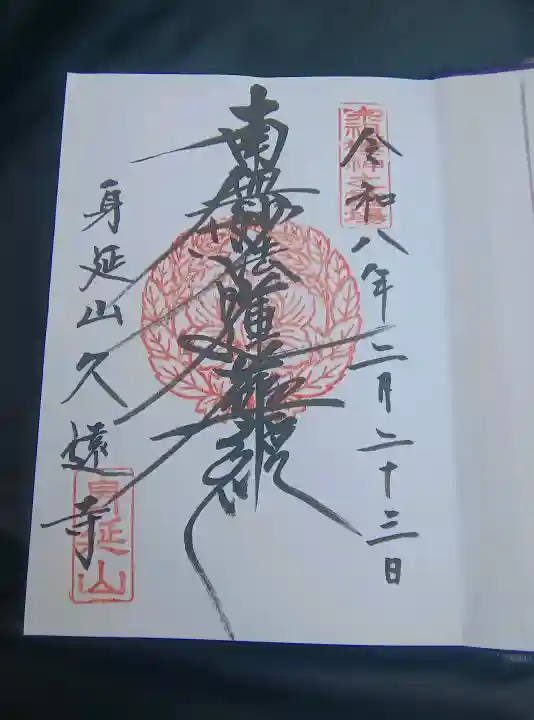 令和八年二月二十三日
南無妙法蓮華経
身延山久遠寺
身延山